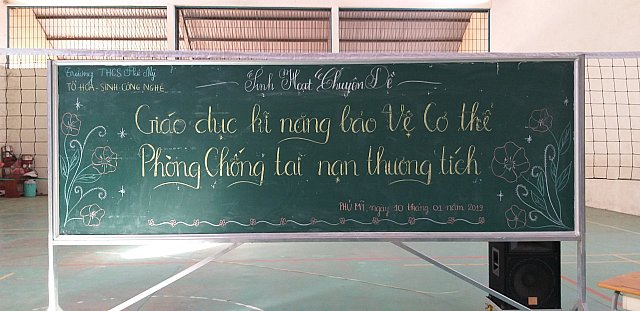 Trường THCS Phú Mỹ
TỔ HÓA - SINH CÔNG NGHỆ
Sinh Hoạt Chuyên Đề
Giáo dục kĩ năng bảo Vệ Cơ thể
Phòng Chống tai nạn thương tích
PHÚ MỸ, ngày 10 tháng 01 năm 2019